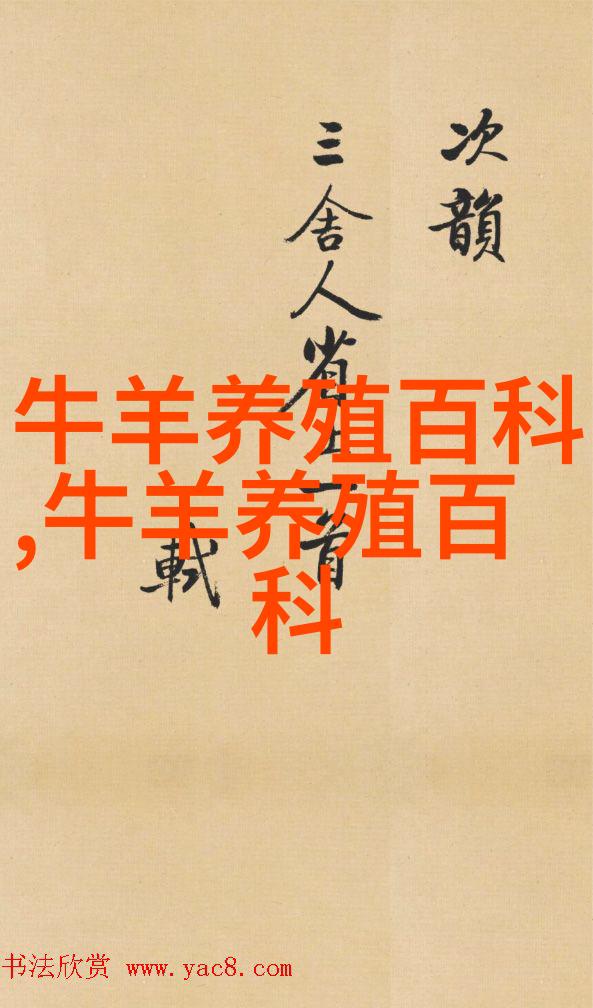 次韻
三舍人省上一首
軾
牛羊养殖百科
,牛羊养殖百
科
书法欣赏 www.yac8.com